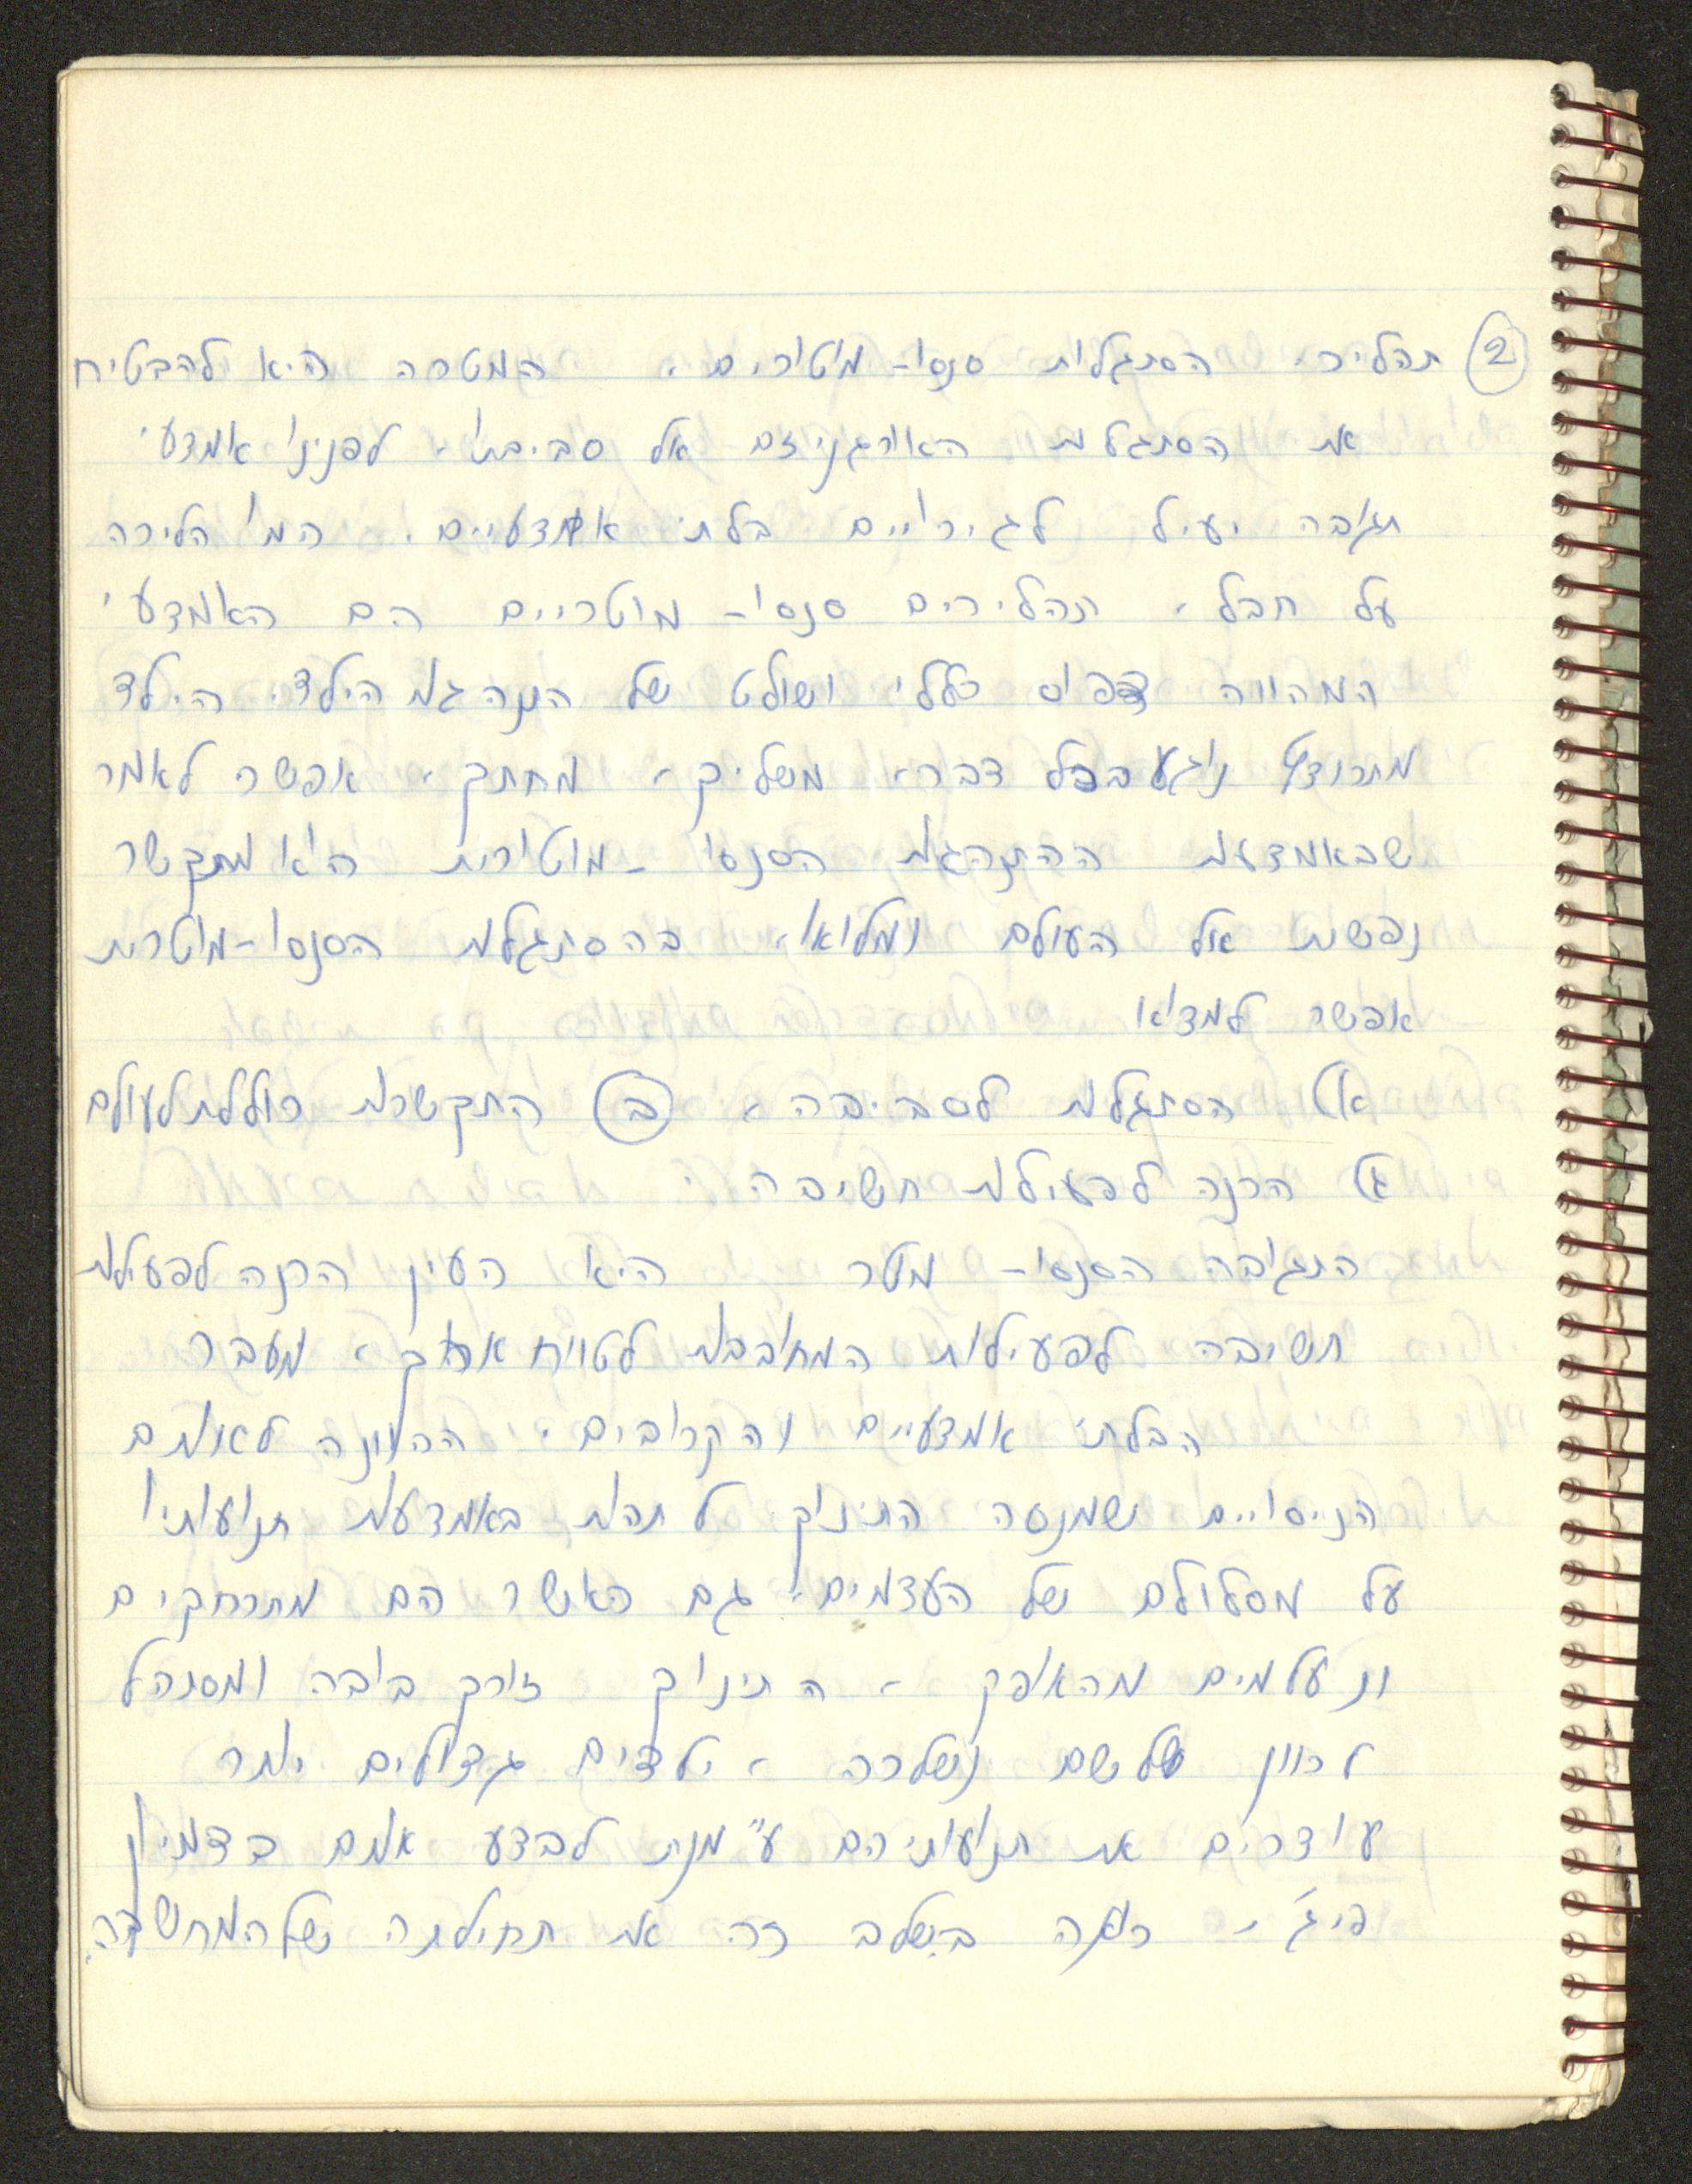 ② תהליכי הסתגלות סנסו-מוטוריים, המטרה היא להבטיח
את הסתגלות האורגניזם אל סביבתו, לפנינו אמצעי
תגובה יעיל לגירויים בלתי אמצעיים. כמו הליכה
על חבל, תהליכים סנסו-מוטריים הם האמצעי
המהווה דפוס כללי ושולט של התנהגות הילד. הילד
מתרוצץ נוגע בכל דבר, משליך, מחתך, אפשר לאמר
שבאמצעות ההתנהגות הסנסו-מוטורית הוא מתקשר
נפשית אל העולם ומלואו, בהסתגלות הסנסו-מוטרית
אפשר למצוא
א) הסתגלות לסביבה, (ב) התקשרות כוללת לעולם
ג) הכנה לפעילות חשיבה
התגובה הסנסו-מוטר היא העין הכנה לפעילות
חשיבה לפעילות המחובבות לטווח ארוך, מעבר
הבלתי אמצעיים והקרובים. הכוונה לאותם
הניסויים שמנסה התינוק לתהות באמצעות תנועותיו
על מסלולם של העצמים, גם כאשר הם מתרחקים
ונעלמים מהאופק, התינוק זורק בובה ומסתכל
לכוון שלשם נשלכה, ילדים גדולים יותר
עוצרים את תנועותיהם ע"מנת לבצע אותם בדמיון
פיג'י רואה בשלב זה את תחילתה של המחשבה.